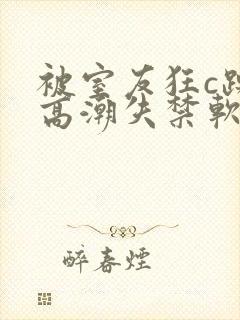 被室友狂c
高潮失禁軟
醉春煙